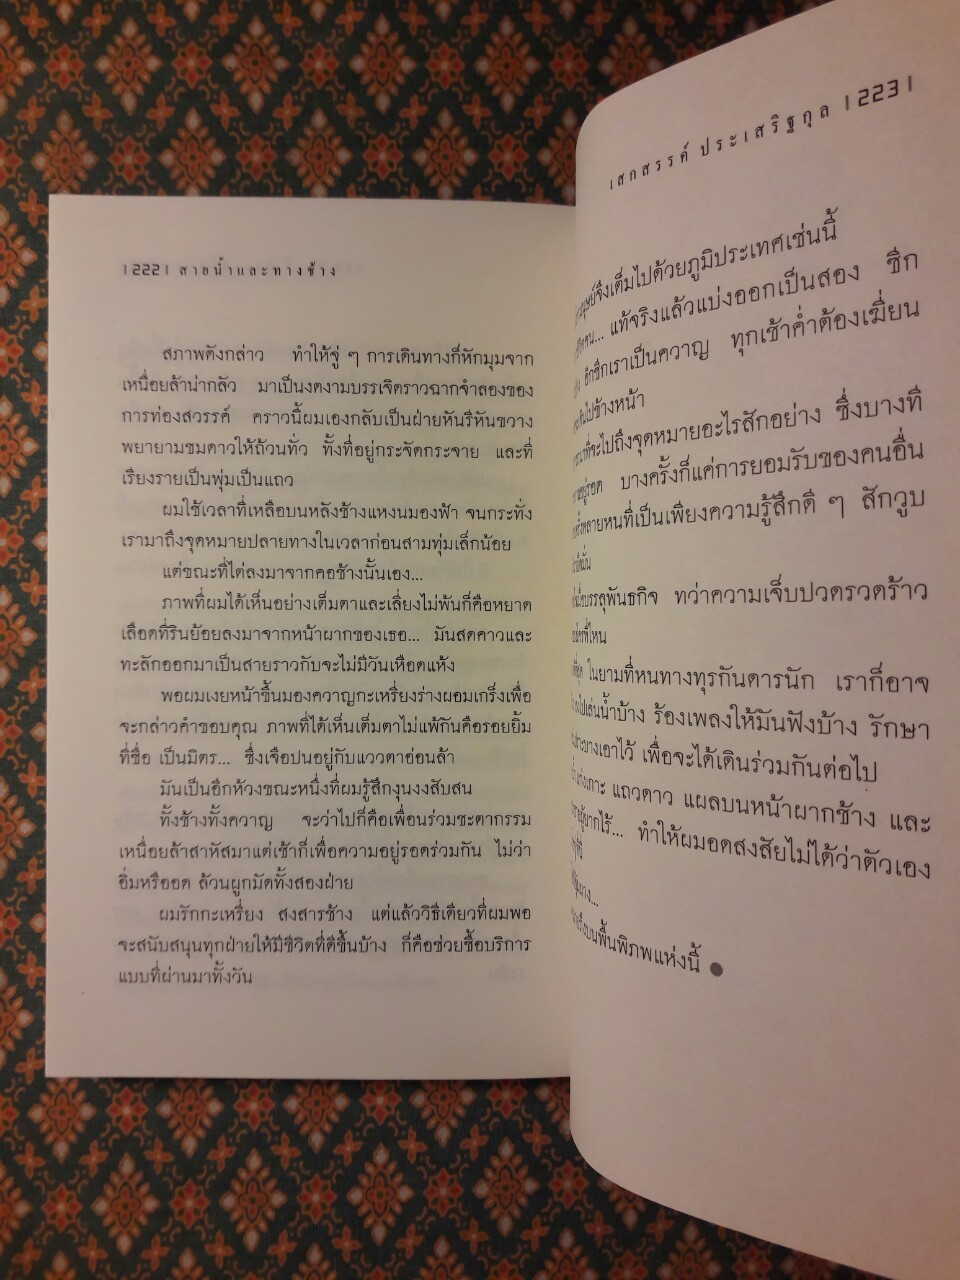 |222| สายน้ำและทางช้าง
สภาพดังกล่าว ทำให้จู่ ๆ การเดินทางก็หักมุมจาก
เหนื่อยล้าน่ากลัว มาเป็นงดงามบรรเจิดราวฉากจำลองของ
การท่องสวรรค์ คราวนี้ผมเองกลับเป็นฝ่ายหันรีหันขวาง
พยายามชมดาวให้ถ้วนทั่ว ทั้งที่อยู่กระจัดกระจาย และที่
เรียงรายเป็นพุ่มเป็นแถว
ผมใช้เวลาที่เหลือบนหลังช้างแหงนมองฟ้า จนกระทั่ง
เรามาถึงจุดหมายปลายทางในเวลาก่อนสามทุ่มเล็กน้อย
แต่ขณะที่ไต่ลงมาจากคอช้างนั้นเอง...
ภาพที่ผมได้เห็นอย่างเต็มตาและเลี่ยงไม่พ้นก็คือหยาด
เลือดที่รินย้อยลงมาจากหน้าผากของเธอ... มันสดคาวและ
ทะลักออกมาเป็นสายราวกับจะไม่มีวันเหือดแห้ง
พอผมเงยหน้าขึ้นมองควาญกะเหรี่ยงร่างผอมเกร็งเพื่อ
จะกล่าวคำขอบคุณ ภาพที่ได้เห็นเต็มตาไม่แพ้กันคือรอยยิ้ม
ที่ซื่อ เป็นมิตร... ซึ่งเจือปนอยู่กับแววตาอ่อนล้า
มันเป็นอีกห้วงขณะหนึ่งที่ผมรู้สึกงุนงงสับสน
ทั้งช้างทั้งควาญ จะว่าไปก็คือเพื่อนร่วมชะตากรรม
เหนื่อยล้าสาหัสมาแต่เช้าก็เพื่อความอยู่รอดร่วมกัน ไม่ว่า
อิ่มหรืออด ล้วนผูกมัดทั้งสองฝ่าย
ผมรักกะเหรี่ยง สงสารช้าง แต่แล้ววิธีเดียวที่ผมพอ
จะสนับสนุนทุกฝ่ายให้มีชีวิตที่ดีขึ้นบ้าง ก็คือช่วยซื้อบริการ
แบบที่ผ่านมาทั้งวัน
เสกสรรค์ ประเสริฐกุล |223|
จึงเต็มไปด้วยภูมิประเทศเช่นนี้
แท้จริงแล้วแบ่งออกเป็นสอง ซีก
อีกซีกเราเป็นควาญ ทุกเช้าค่ำต้องเฆี่ยน
ไปข้างหน้า
ที่จะไปถึงจุดหมายอะไรสักอย่าง ซึ่งบางที
บางครั้งก็แค่การยอมรับของคนอื่น
หลายหนที่เป็นเพียงความรู้สึกดี ๆ สักวูบ
บรรลุพันธกิจ ทว่าความเจ็บปวดรวดร้าว
ที่ไหน
ในยามที่หนทางทุรกันดารนัก เราก็อาจ
ไปเล่นน้ำบ้าง ร้องเพลงให้มันฟังบ้าง รักษา
บางเอาไว้ เพื่อจะได้เดินร่วมกันต่อไป
แถวดาว แผลบนหน้าผากช้าง และ
ทำให้ผมอดสงสัยไม่ได้ว่าตัวเอง
บนพื้นพิภพแห่งนี้ ●